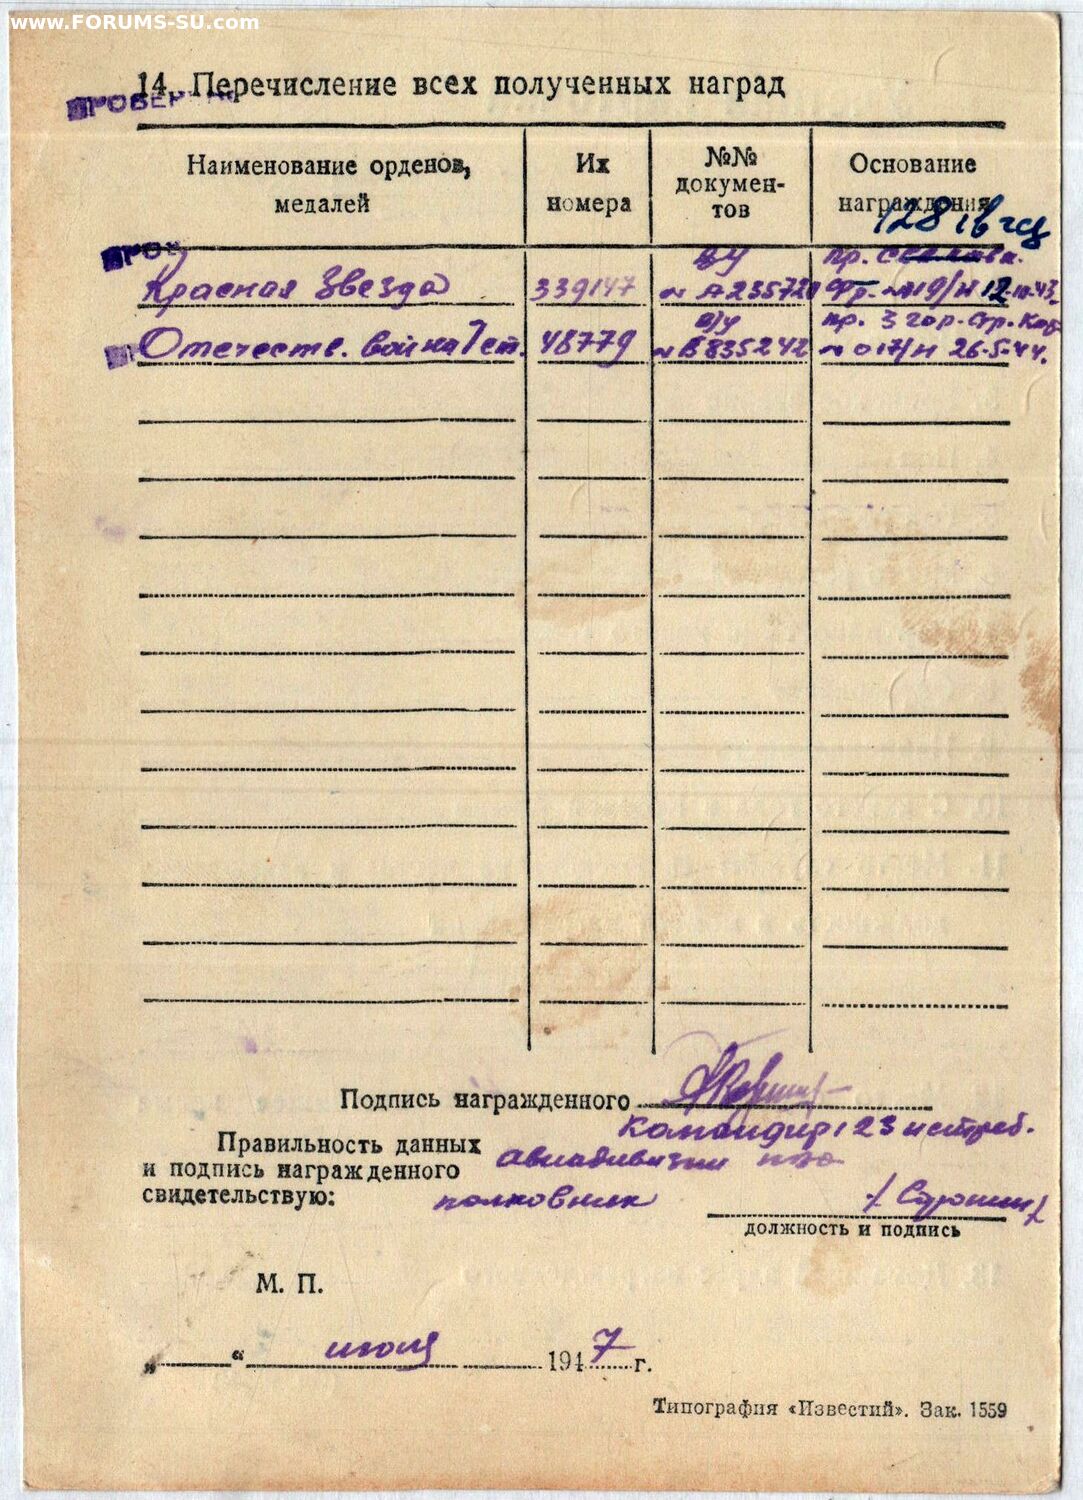 www.FORUMS-SU.com
14. Перечисление всех полученных наград
Наименование орденов, медалей
Их номера
№№ документов
Основание награждения
128 гв
Красная Звезда 339147 ву № А235720 пр. фр. №019/н 12-10-43.
Отечеств. война 1 ст. 48779 в/у № В835242 пр. 3 гор. стр. Кор. № 017/н 26-5-44.
Подпись награжденного
Командир 123 истреб.
Правильность данных
и подпись награжденного
свидетельствую:
авиадивизии пво
полковник
должность и подпись
М. П.
„ “ июля 1947 г.
Типография «Известий». Зак. 1559